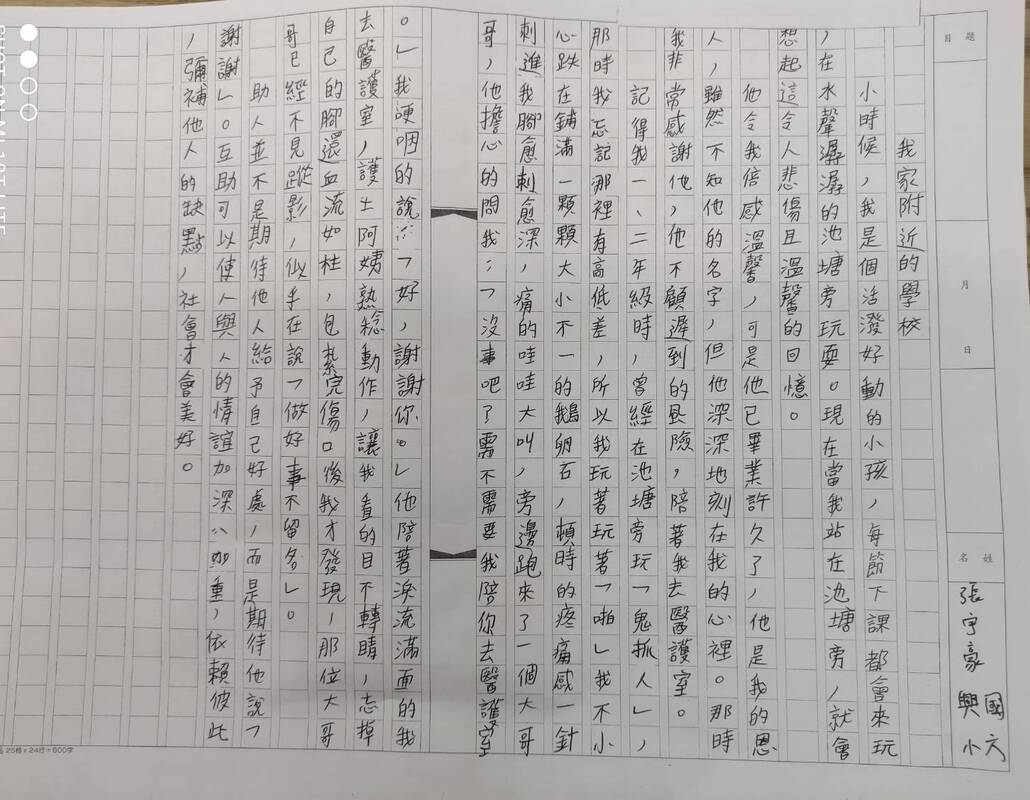 目題
月
日
名姓
張宇豪 興國小六
我家附近的學校
小時候，我是個活潑好動的小孩，每節下課都會來玩
，在水聲潺潺的池塘旁玩耍。現在當我站在池塘旁，就會
想起這令人悲傷且溫馨的回憶。
他令我倍感溫馨，可是他已畢業許久了，他是我的恩
人，雖然不知他的名字，但他深深地刻在我的心裡。那時
我非常感謝他，他不顧遲到的風險，陪著我去醫護室。
記得我一、二年級時，曾經在池塘旁玩「鬼抓人」，
那時我忘記那裡有高低差，所以我玩著玩著「啪」我不小
心跌在鋪滿一顆顆大小不一的鵝卵石，頓時的疼痛感一針
刺進我腳愈刺愈深，痛的哇哇大叫，旁邊跑來了一個大哥
哥，他擔心的問我：「沒事吧？需不需要我陪你去醫護室
。」我哽咽的說：「好，謝謝你。」他陪著淚流滿面的我
去醫護室，護士阿姨熟稔動作，讓我看的目不轉睛，忘掉
自己的腳還血流如柱，包紮完傷口後我才發現，那位大哥
哥已經不見蹤影，似乎在說「做好事不留名」。
助人並不是期待他人給予自己好處，而是期待他說「
謝謝」。互助可以使人與人的情誼加深、加重，依賴彼此
，彌補他人的缺點，社會才會美好。
25格x24行=600字